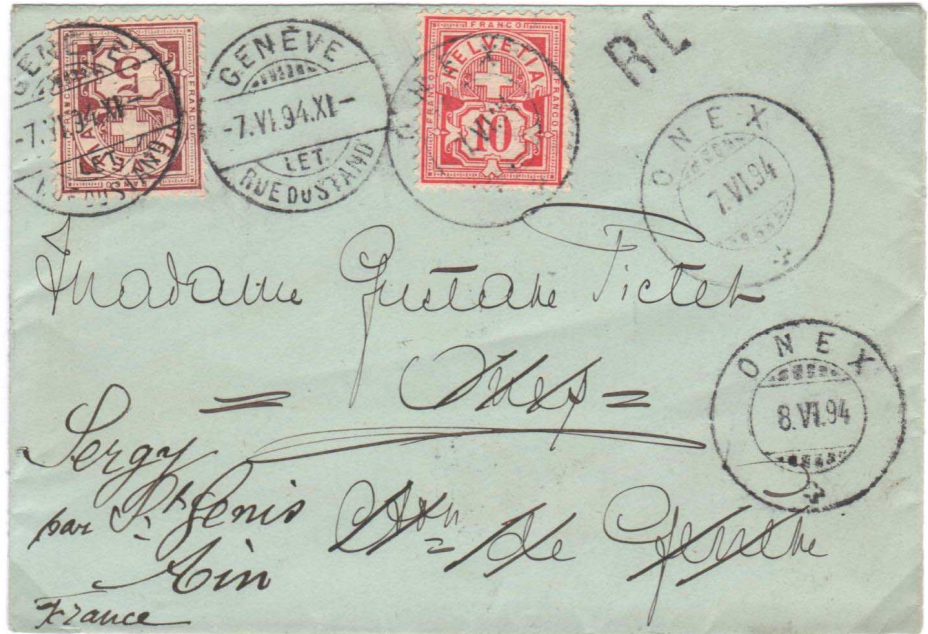 GENÈVE
-7.VI.94.XI-
LET.
RUE DU STAND
5
FRANCO
GENÈVE
-7.VI.94.XI-
LET.
RUE DU STAND
FRANCO
HELVETIA
10
FRANCO
FRANCO
RL
ONEX
7.VI.94
ONEX
8.VI.94
Madame Gustave Pictet
= Onex =
Sergy
par St Genis
Ain
France
Ctn de Genève